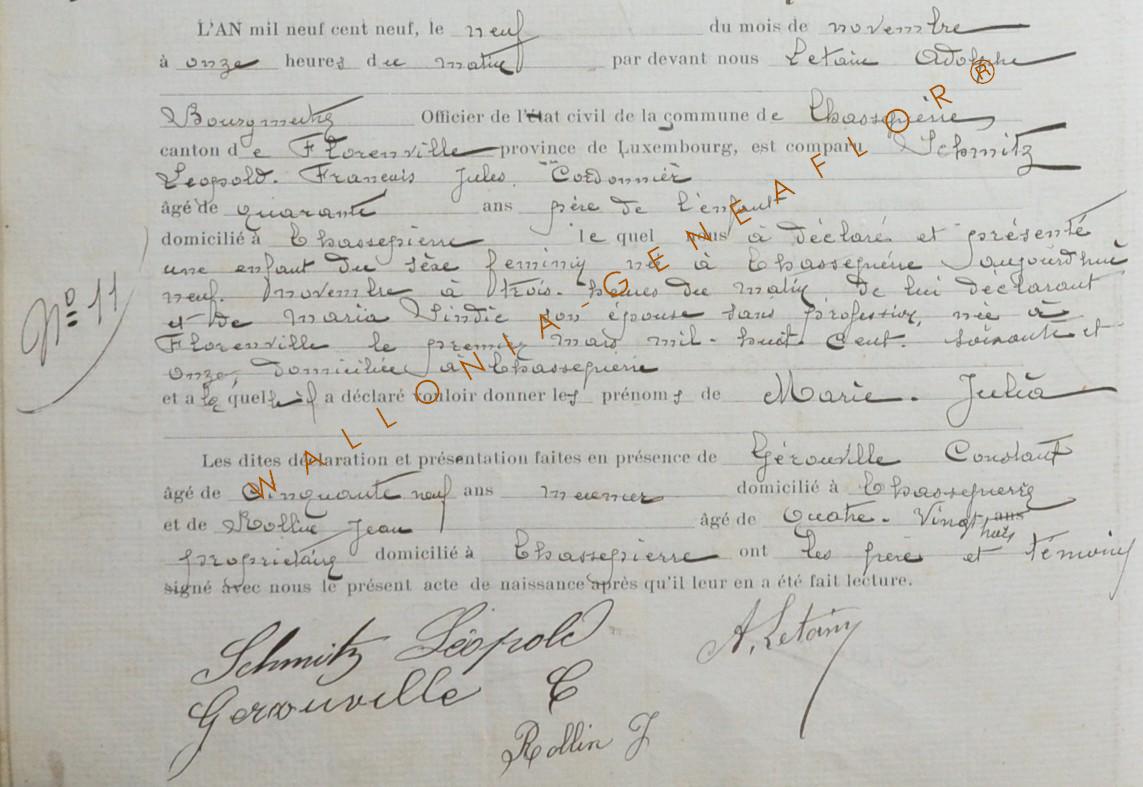 L'AN mil neuf cent neuf, le neuf du mois de novembre
à onze heures du matin par devant nous Letain Adolphe
Bourgmestre Officier de l'état civil de la commune de Chassepierre
canton de Florenville province de Luxembourg, est comparu Schmitz
Leopold. Francois Jules. Cordonnier
âgé de quarante ans père de l'enfant
domicilié à Chassepierre le quel nous à déclaré et présenté
une enfant du sexe feminin née à Chassepierre aujourd'hui
neuf. novembre à trois. heures du matin de lui déclarant
et de Maria Lindic son épouse sans profession, née à
Florenville le premier mars mil-huit cent. soixante et
onze, domiciliée à Chassepierre
N° 11
et a le quel il a déclaré vouloir donner les prénoms de Marie. Julia
Les dites déclaration et présentation faites en présence de Gérouville Constant
âgé de Cinquante neuf ans meunier domicilié à Chassepierre
et de Rollin Jean âgé de Quatre. Vingt ans
huit
propriétaire domicilié à Chassepierre ont les père et témoins
signé avec nous le présent acte de naissance après qu'il leur en a été fait lecture.
Schmitz Léopold A. Letain
Gerouville C
Rollin J
WALLONIA-GENEAFLOR®